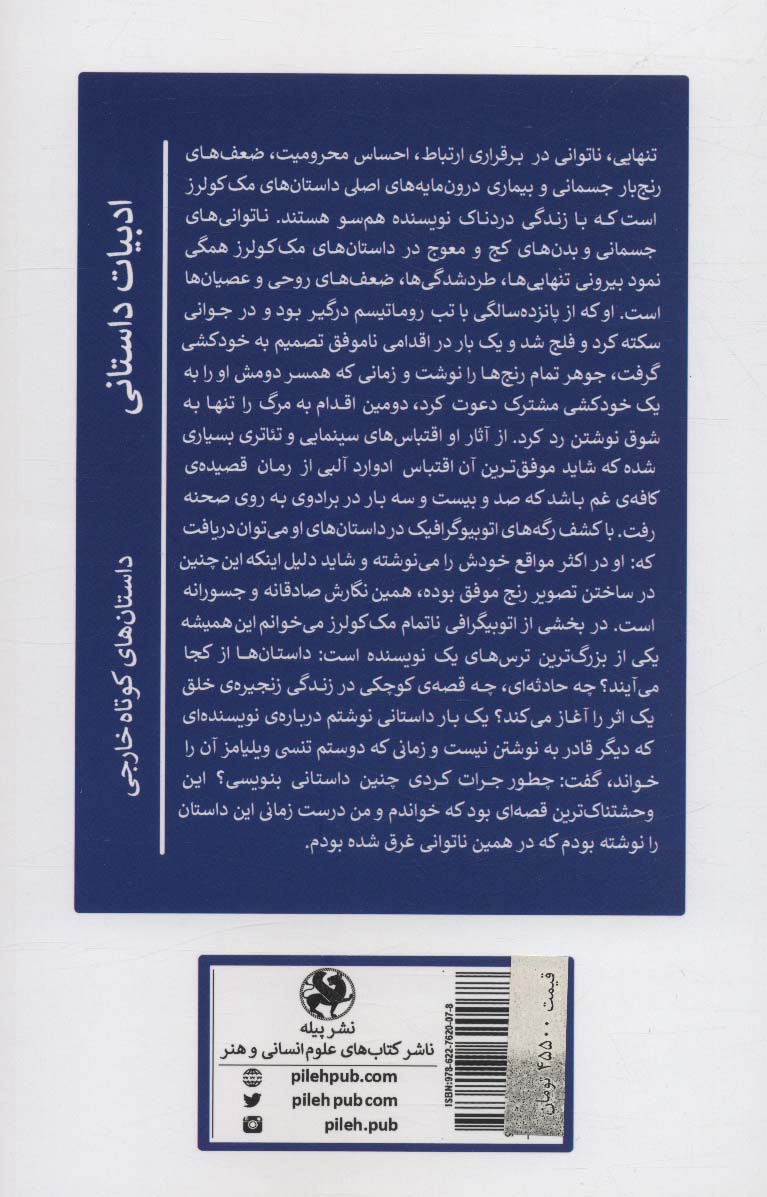 تنهایی، ناتوانی در برقراری ارتباط، احساس محرومیت، ضعف‌های
رنج‌بار جسمانی و بیماری درون‌مایه‌های اصلی داستان‌های مک‌کولرز
است که با زندگی دردناک نویسنده هم‌سو هستند. ناتوانی‌های
جسمانی و بدن‌های کج و معوج در داستان‌های مک‌کولرز همگی
نمود بیرونی تنهایی‌ها، طردشدگی‌ها، ضعف‌های روحی و عصیان‌ها
است. او که از پانزده‌سالگی با تب روماتیسم درگیر بود و در جوانی
سکته کرد و فلج شد و یک بار در اقدامی ناموفق تصمیم به خودکشی
گرفت، جوهر تمام رنج‌ها را نوشت و زمانی که همسر دومش او را به
یک خودکشی مشترک دعوت کرد، دومین اقدام به مرگ را تنها به
شوق نوشتن رد کرد. از آثار او اقتباس‌های سینمایی و تئاتری بسیاری
شده که شاید موفق‌ترین آن اقتباس ادوارد آلبی از رمان قصیده‌ی
کافه‌ی غم باشد که صد و بیست و سه بار در برادوی به روی صحنه
رفت. با کشف رگه‌های اتوبیوگرافیک در داستان‌های او می‌توان دریافت
که: او در اکثر مواقع خودش را می‌نوشته و شاید دلیل اینکه این چنین
در ساختن تصویر رنج موفق بوده، همین نگارش صادقانه و جسورانه
است. در بخشی از اتوبیگرافی ناتمام مک‌کولرز می‌خوانم این همیشه
یکی از بزرگ‌ترین ترس‌های یک نویسنده است: داستان‌ها از کجا
می‌آیند؟ چه حادثه‌ای، چه قصه‌ی کوچکی در زندگی زنجیره‌ی خلق
یک اثر را آغاز می‌کند؟ یک بار داستانی نوشتم درباره‌ی نویسنده‌ای
که دیگر قادر به نوشتن نیست و زمانی که دوستم تنسی ویلیامز آن را
خواند، گفت: چطور جرات کردی چنین داستانی بنویسی؟ این
وحشتناک‌ترین قصه‌ای بود که خواندم و من درست زمانی این داستان
را نوشته بودم که در همین ناتوانی غرق شده بودم.
ادبیات داستانی
داستان‌های کوتاه خارجی
نشر پیله
ناشر کتاب‌های علوم انسانی و هنر
pilehpub.com
pilehpub com
pileh.pub
ISBN:978-622-7620-07-8
قیمت ۴۵۵۰۰ تومان